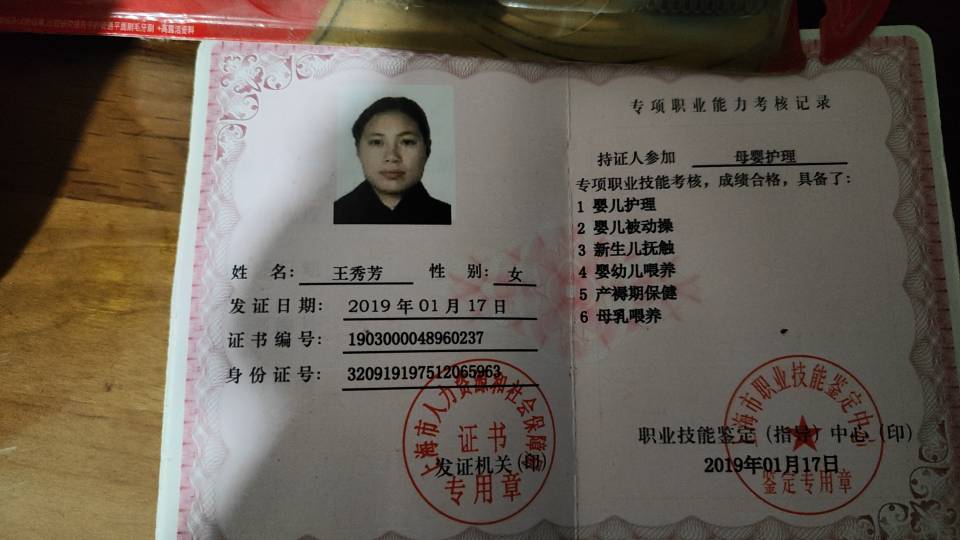 普通平面刷毛牙刷 +高露洁资料
姓 名： 王秀芳 性 别： 女
发证日期： 2019 年 01 月 17 日
证书编号： 1903000048960237
身份证号： 320919197512065963
上海市人力资源和社会保障局
证书
发证机关（印）
专用章
专项职业能力考核记录
持证人参加 母婴护理
专项职业技能考核，成绩合格，具备了：
1 婴儿护理
2 婴儿被动操
3 新生儿抚触
4 婴幼儿喂养
5 产褥期保健
6 母乳喂养
上海市职业技能鉴定中心
职业技能鉴定（指导）中心（印）
2019年01月17日
鉴定专用章